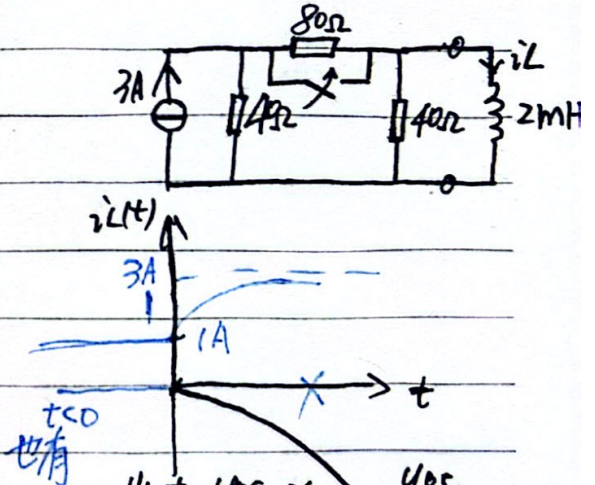 80Ω
3A 40Ω 40Ω iL 2mH
iL(t)
3A
1A
t<0 t
也有